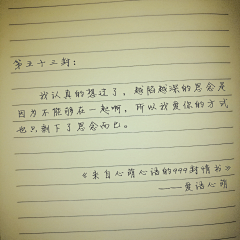 第五十三封:
我认真的想过了，越陷越深的思念是
因为不能够在一起啊，所以我爱你的方式
也只剩下了思念而已。
《来自心萌心语的999封情书》
——爱语心萌